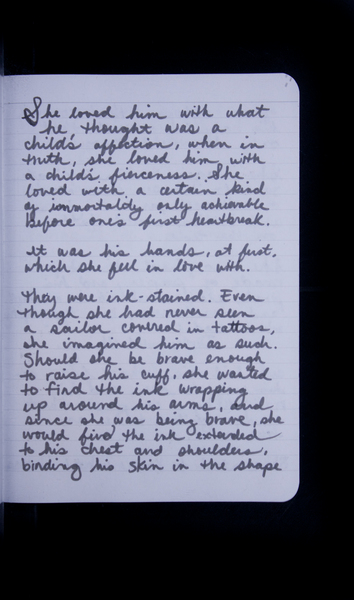 She loved him with what
he thought was a
child's affection, when in
truth, she loved him with
a child's fierceness. She
loved with a certain kind
of immortality only achievable
before one's first heartbreak.
It was his hands, at first,
which she fell in love with.
They were ink-stained. Even
though she had never seen
a sailor covered in tattoos,
she imagined him as such.
Should she be brave enough
to raise his cuff, she wanted
to find the ink wrapping
up around his arms, and
since she was being brave, she
would find the ink extended
to his chest and shoulders,
binding his skin in the shape